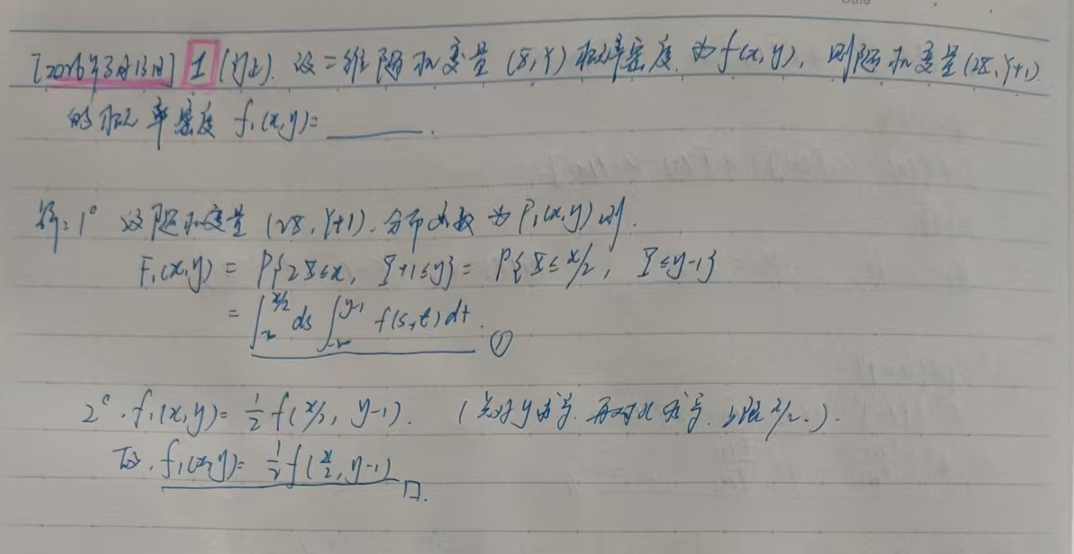 [2026年3月13日] 1 (填空). 设二维随机变量 (X,Y) 概率密度为 f(x,y), 则随机变量(2X,Y+1)
的概率密度 f₁(x,y)=______.
解:1° 设随机变量 (2X,Y+1).分布函数为 F₁(x,y) 则.
F₁(x,y) = P{2X≤x, Y+1≤y} = P{X≤x/2, Y≤y-1}
= ∫_{-∞}^{x/2} ds ∫_{-∞}^{y-1} f(s,t) dt. ①
2°. f₁(x,y) = 1/2 f(x/2, y-1). (先对y求导.再对x求导.上限x/2.).
故. f₁(x,y) = 1/2 f(x/2, y-1) □.